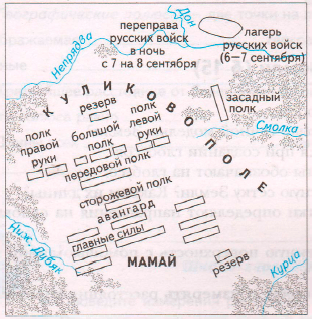 Дон
переправа
русских войск
в ночь
с 7 на 8 сентября
лагерь
русских войск
(6–7 сентября)
Непрядва
засадный
полк
КУЛИКОВО ПОЛЕ
резерв
полк
правой
руки
большой
полк
полк
левой
руки
Смолка
передовой полк
сторожевой полк
авангард
главные силы
Ниж. Дубяк
МАМАЙ
резерв
Курца